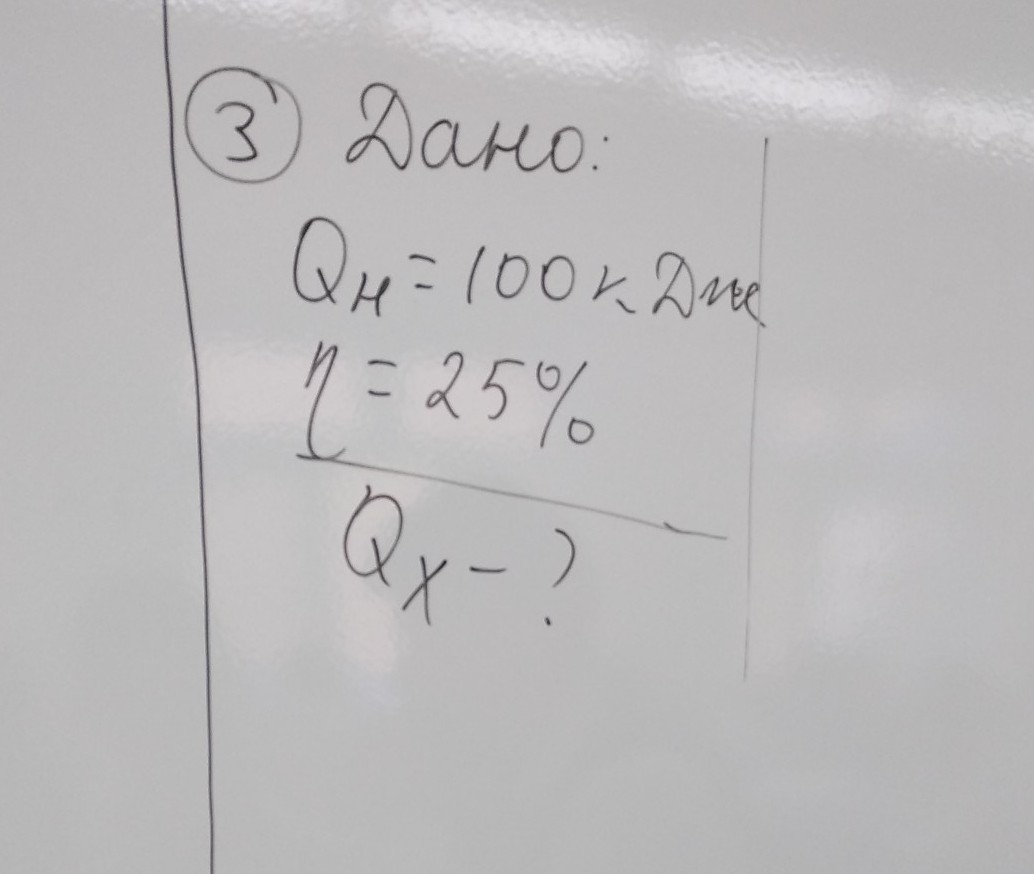 3 Дано:
Qн = 100 кДж
η = 25%
Qх - ?